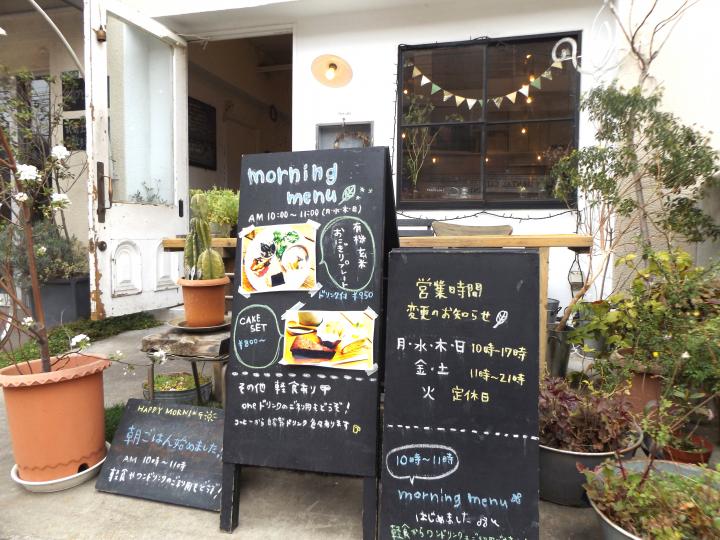 morning
menu
AM 10:00〜11:00 (月・水・木・日)
有機玄米
おにぎりプレート
ドリンク付 ¥950
CAKE
SET
¥800〜
その他 軽食有り
oneドリンクのご利用もどうぞ!
営業時間
変更のお知らせ
月・水・木・日 10時〜17時
金・土 11時〜21時
火 定休日
10時〜11時
morning menu
はじめました
HAPPY MORNING
朝ごはん始めました!
AM 10時〜11時
軽食やワンドリンクのご利用もどうぞ!